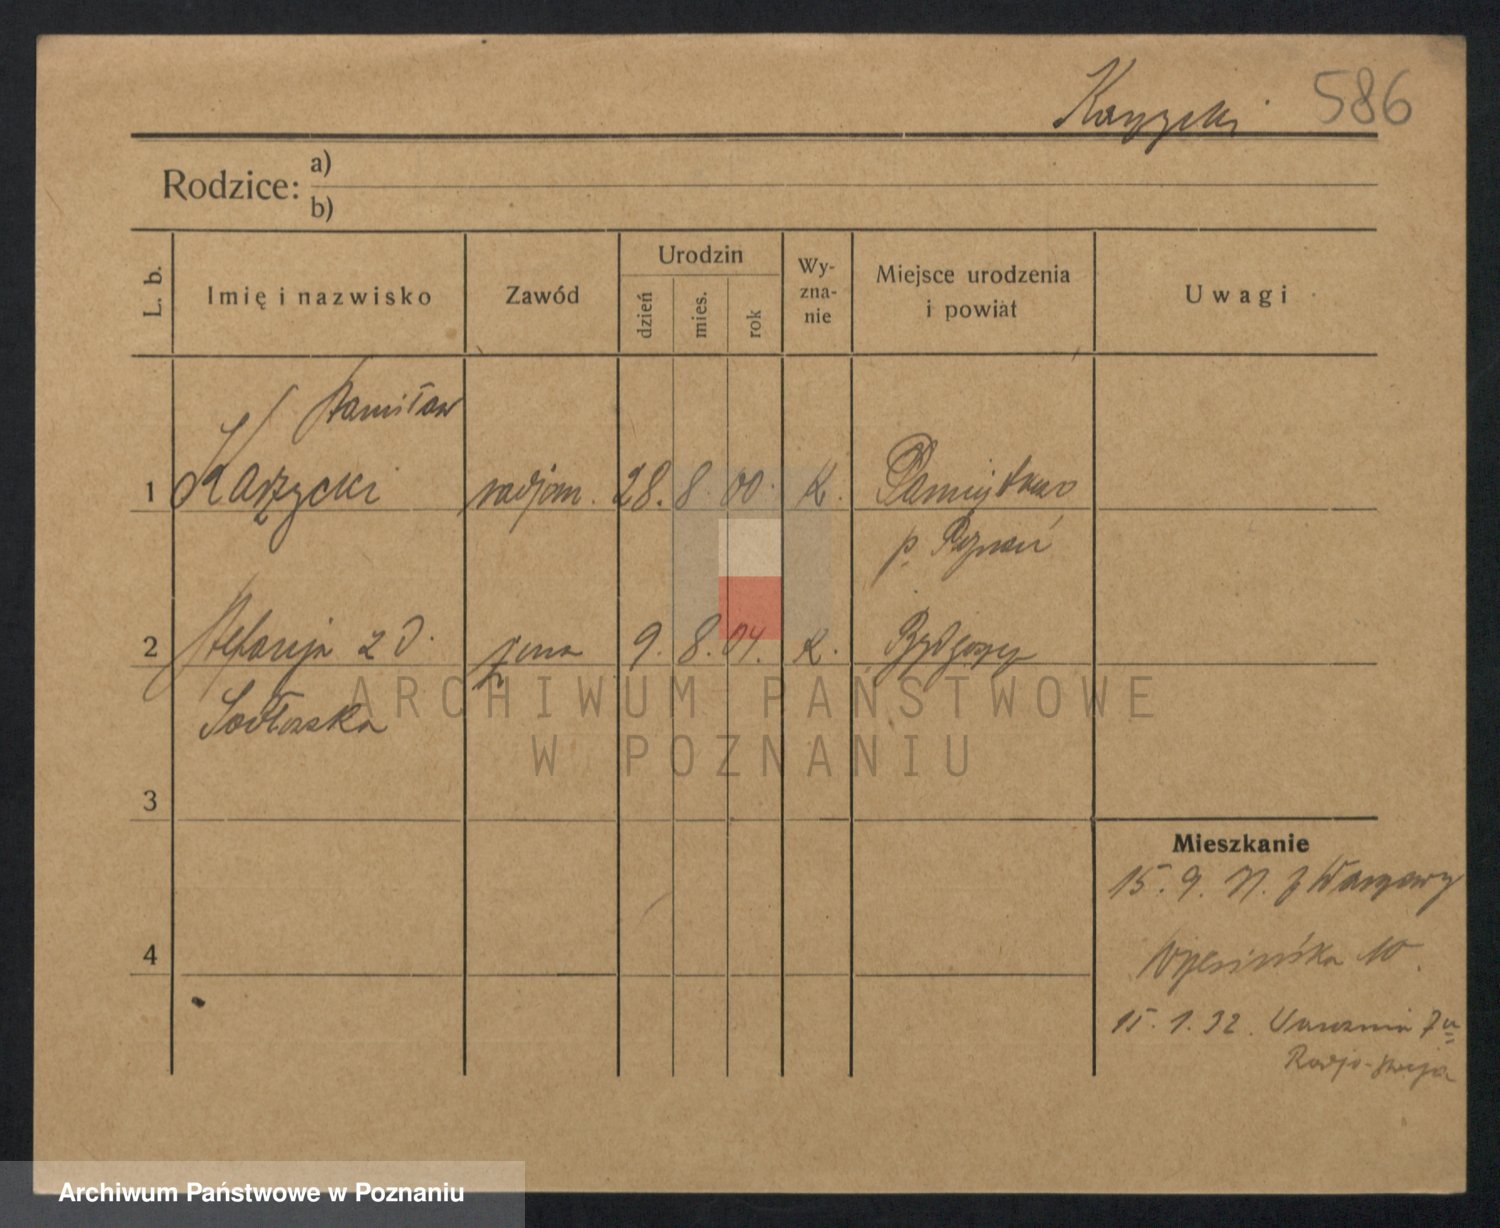 Karzycki 586
Rodzice: a)
b)
L. b. Imię i nazwisko Zawód Urodzin dzień mies. rok Wy-zna-nie Miejsce urodzenia i powiat Uwagi
Stanisław
1 Karzycki radjom. 28. 8. 00. K.
p. Poznań
2 Stefanja z d. żona 9. 8. 04. K. Bydgoszcz
3
4
Mieszkanie
15. 9. 31. z Warszawy
10.
15. 1. 32. 7a
Radjo-stacja
ARCHIWUM PAŃSTWOWE
W POZNANIU
Archiwum Państwowe w Poznaniu